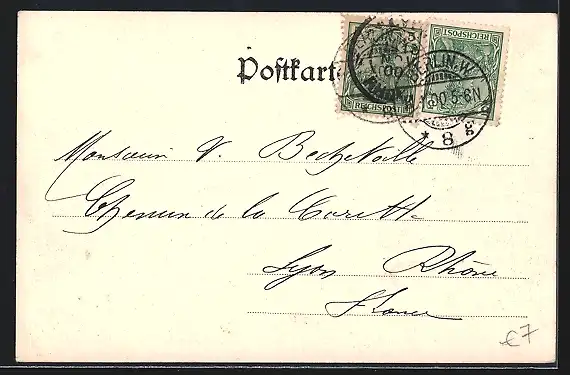 Postkarte
REICHSPOST
REICHSPOST
BERLIN.W.
00.5-6N
* 8 g
Monsieur V. Becheville
Chemin de la Corette
Lyon Rhône
France
€7